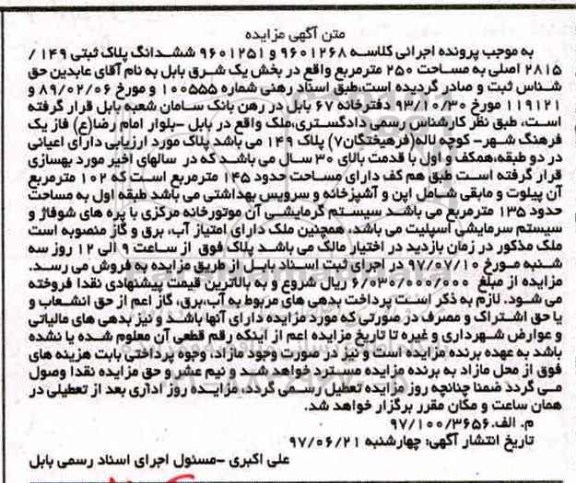 متن آگهی مزایده
به موجب پرونده اجرائی کلاسه ۹۶۰۱۲۶۸ و ۹۶۰۱۲۵۱ ششدانگ پلاک ثبتی ۱۴۹ /
۲۸۱۵ اصلی به مساحت ۲۵۰ مترمربع واقع در بخش یک شرق بابل به نام آقای عابدین حق
شناس ثبت و صادر گردیده است،طبق اسناد رهنی شماره ۱۰۰۵۵۵ و مورخ ۸۹/۰۲/۰۶ و
۱۱۹۱۲۱ مورخ ۹۳/۱۰/۳۰ دفترخانه ۶۷ بابل در رهن بانک سامان شعبه بابل قرار گرفته
است، طبق نظر کارشناس رسمی دادگستری،ملک واقع در بابل -بلوار امام رضا(ع) فاز یک
فرهنگ شهر- کوچه لاله(فرهیختگان۷) پلاک ۱۴۹ می باشد پلاک مورد ارزیابی دارای اعیانی
در دو طبقه،همکف و اول با قدمت بالای ۳۰ سال می باشد که در سالهای اخیر مورد بهسازی
قرار گرفته است طبق هم کف دارای مساحت حدود ۱۴۵ مترمربع است که ۱۰۲ مترمربع
آن پیلوت و مابقی شامل اپن و آشپزخانه و سرویس بهداشتی می باشد طبقه اول به مساحت
حدود ۱۳۵ مترمربع می باشد سیستم گرمایشی آن موتورخانه مرکزی با پره های شوفاژ و
سیستم سرمایشی آسپلیت می باشد، همچنین ملک دارای امتیاز آب، برق و گاز منصوبه است
ملک مذکور در زمان بازدید در اختیار مالک می باشد پلاک فوق از ساعت ۹ الی ۱۲ روز سه
شنبه مورخ ۹۷/۰۷/۱۰ در اجرای ثبت اسناد بابل از طریق مزایده به فروش می رسد.
مزایده از مبلغ ۶/۰۳۰/۰۰۰/۰۰۰ ریال شروع و به بالاترین قیمت پیشنهادی نقدا فروخته
می شود. لازم به ذکر است پرداخت بدهی های مربوط به آب،برق، گاز اعم از حق انشعاب و
یا حق اشتراک و مصرف در صورتی که مورد مزایده دارای آنها باشد و نیز بدهی های مالیاتی
و عوارض شهرداری و غیره تا تاریخ مزایده اعم از اینکه رقم قطعی آن معلوم شده یا نشده
باشد به عهده برنده مزایده است و نیز در صورت وجود مازاد، وجوه پرداختی بابت هزینه های
فوق از محل مازاد به برنده مزایده مسترد خواهد شد و نیم عشر و حق مزایده نقدا وصول
می گردد ضمنا چنانچه روز مزایده تعطیل رسمی گردد، مزایده روز اداری بعد از تعطیلی در
همان ساعت و مکان مقرر برگزار خواهد شد.
م. الف.۹۷/۱۰۰/۳۶۵۶
تاریخ انتشار آگهی: چهارشنبه ۹۷/۰۶/۲۱
علی اکبری -مسئول اجرای اسناد رسمی بابل